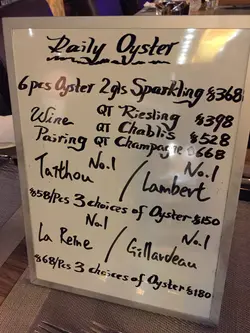 Daily Oyster
6pcs Oyster 2gls Sparkling $368
Wine QT Riesling $398
QT Chablis $528
Pairing QT Champagne $668
No.1 No.1
Tatihou / Lambert
$58/Pcs 3 choices of Oyster $150
No.1 No.1
La Reine / Gillardeau
$68/Pcs 3 choices of Oyster $180